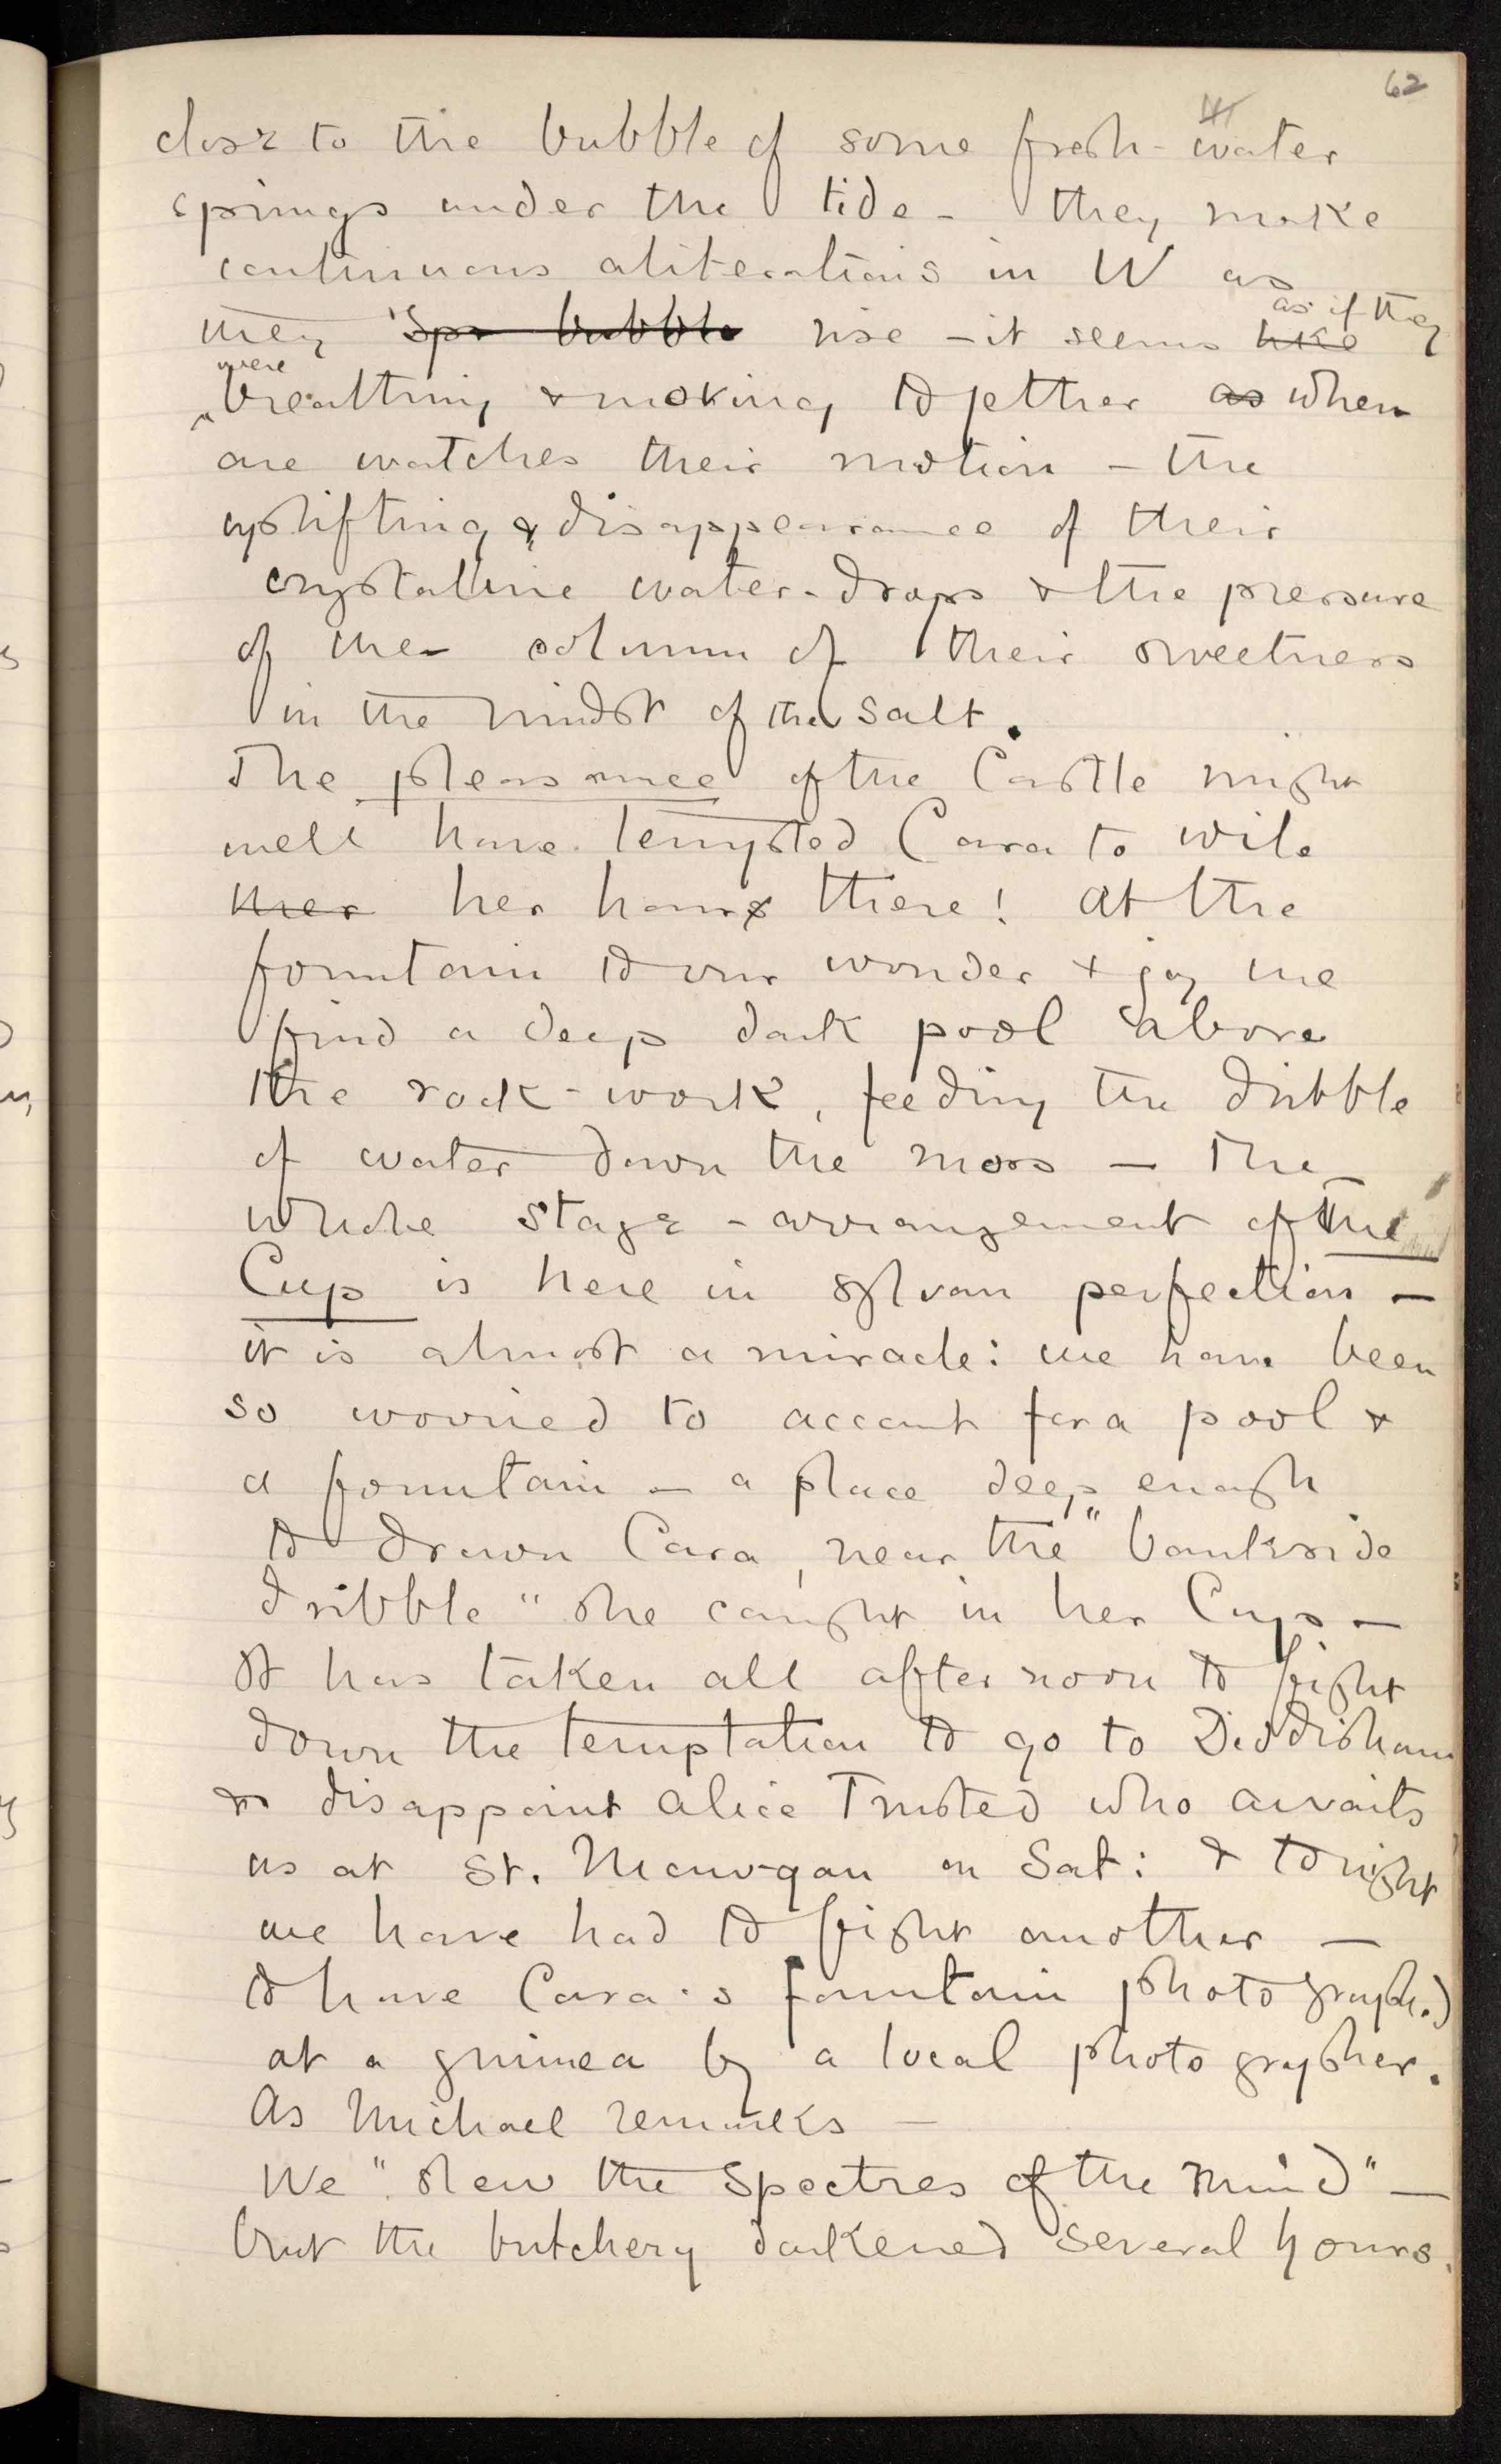 62
close to the bubble of some fresh-water
springs under the tide - they make
continuous aliterations in W as
they Spr bubble rise - it seems like as if they
were breathing & moking together as when
one watches their motion - the
uplifting & disappearance of their
crystalline water-drops & the pressure
of the column of their sweetness
in the midst of the salt.
The pleasaunce of the Castle might
well have tempted Cara to wile
her her hours there! At the
fountain to our wonder & joy we
find a deep dark pool above
the rock-work, feeding the dribble
of water down the moss - The
whole stage-arrangement of the
Cup is here in sylvan perfection -
it is almost a miracle: we have been
so worried to account for a pool &
a fountain - a place deep enough
to drown Cara, near the "bankside
dribble" she caught in her Cup -
It has taken all afternoon to fight
down the temptation to go to Diddisham
& disappoint Alice Trusted who awaits
us at St. Mawgan on Sat: & tonight
we have had to fight another -
to have Cara's fountain photograph.)
at a guinea by a local photographer.
As Michael remarks -
We "slew the Spectres of the Mind" -
but the butchery darkened several hours.